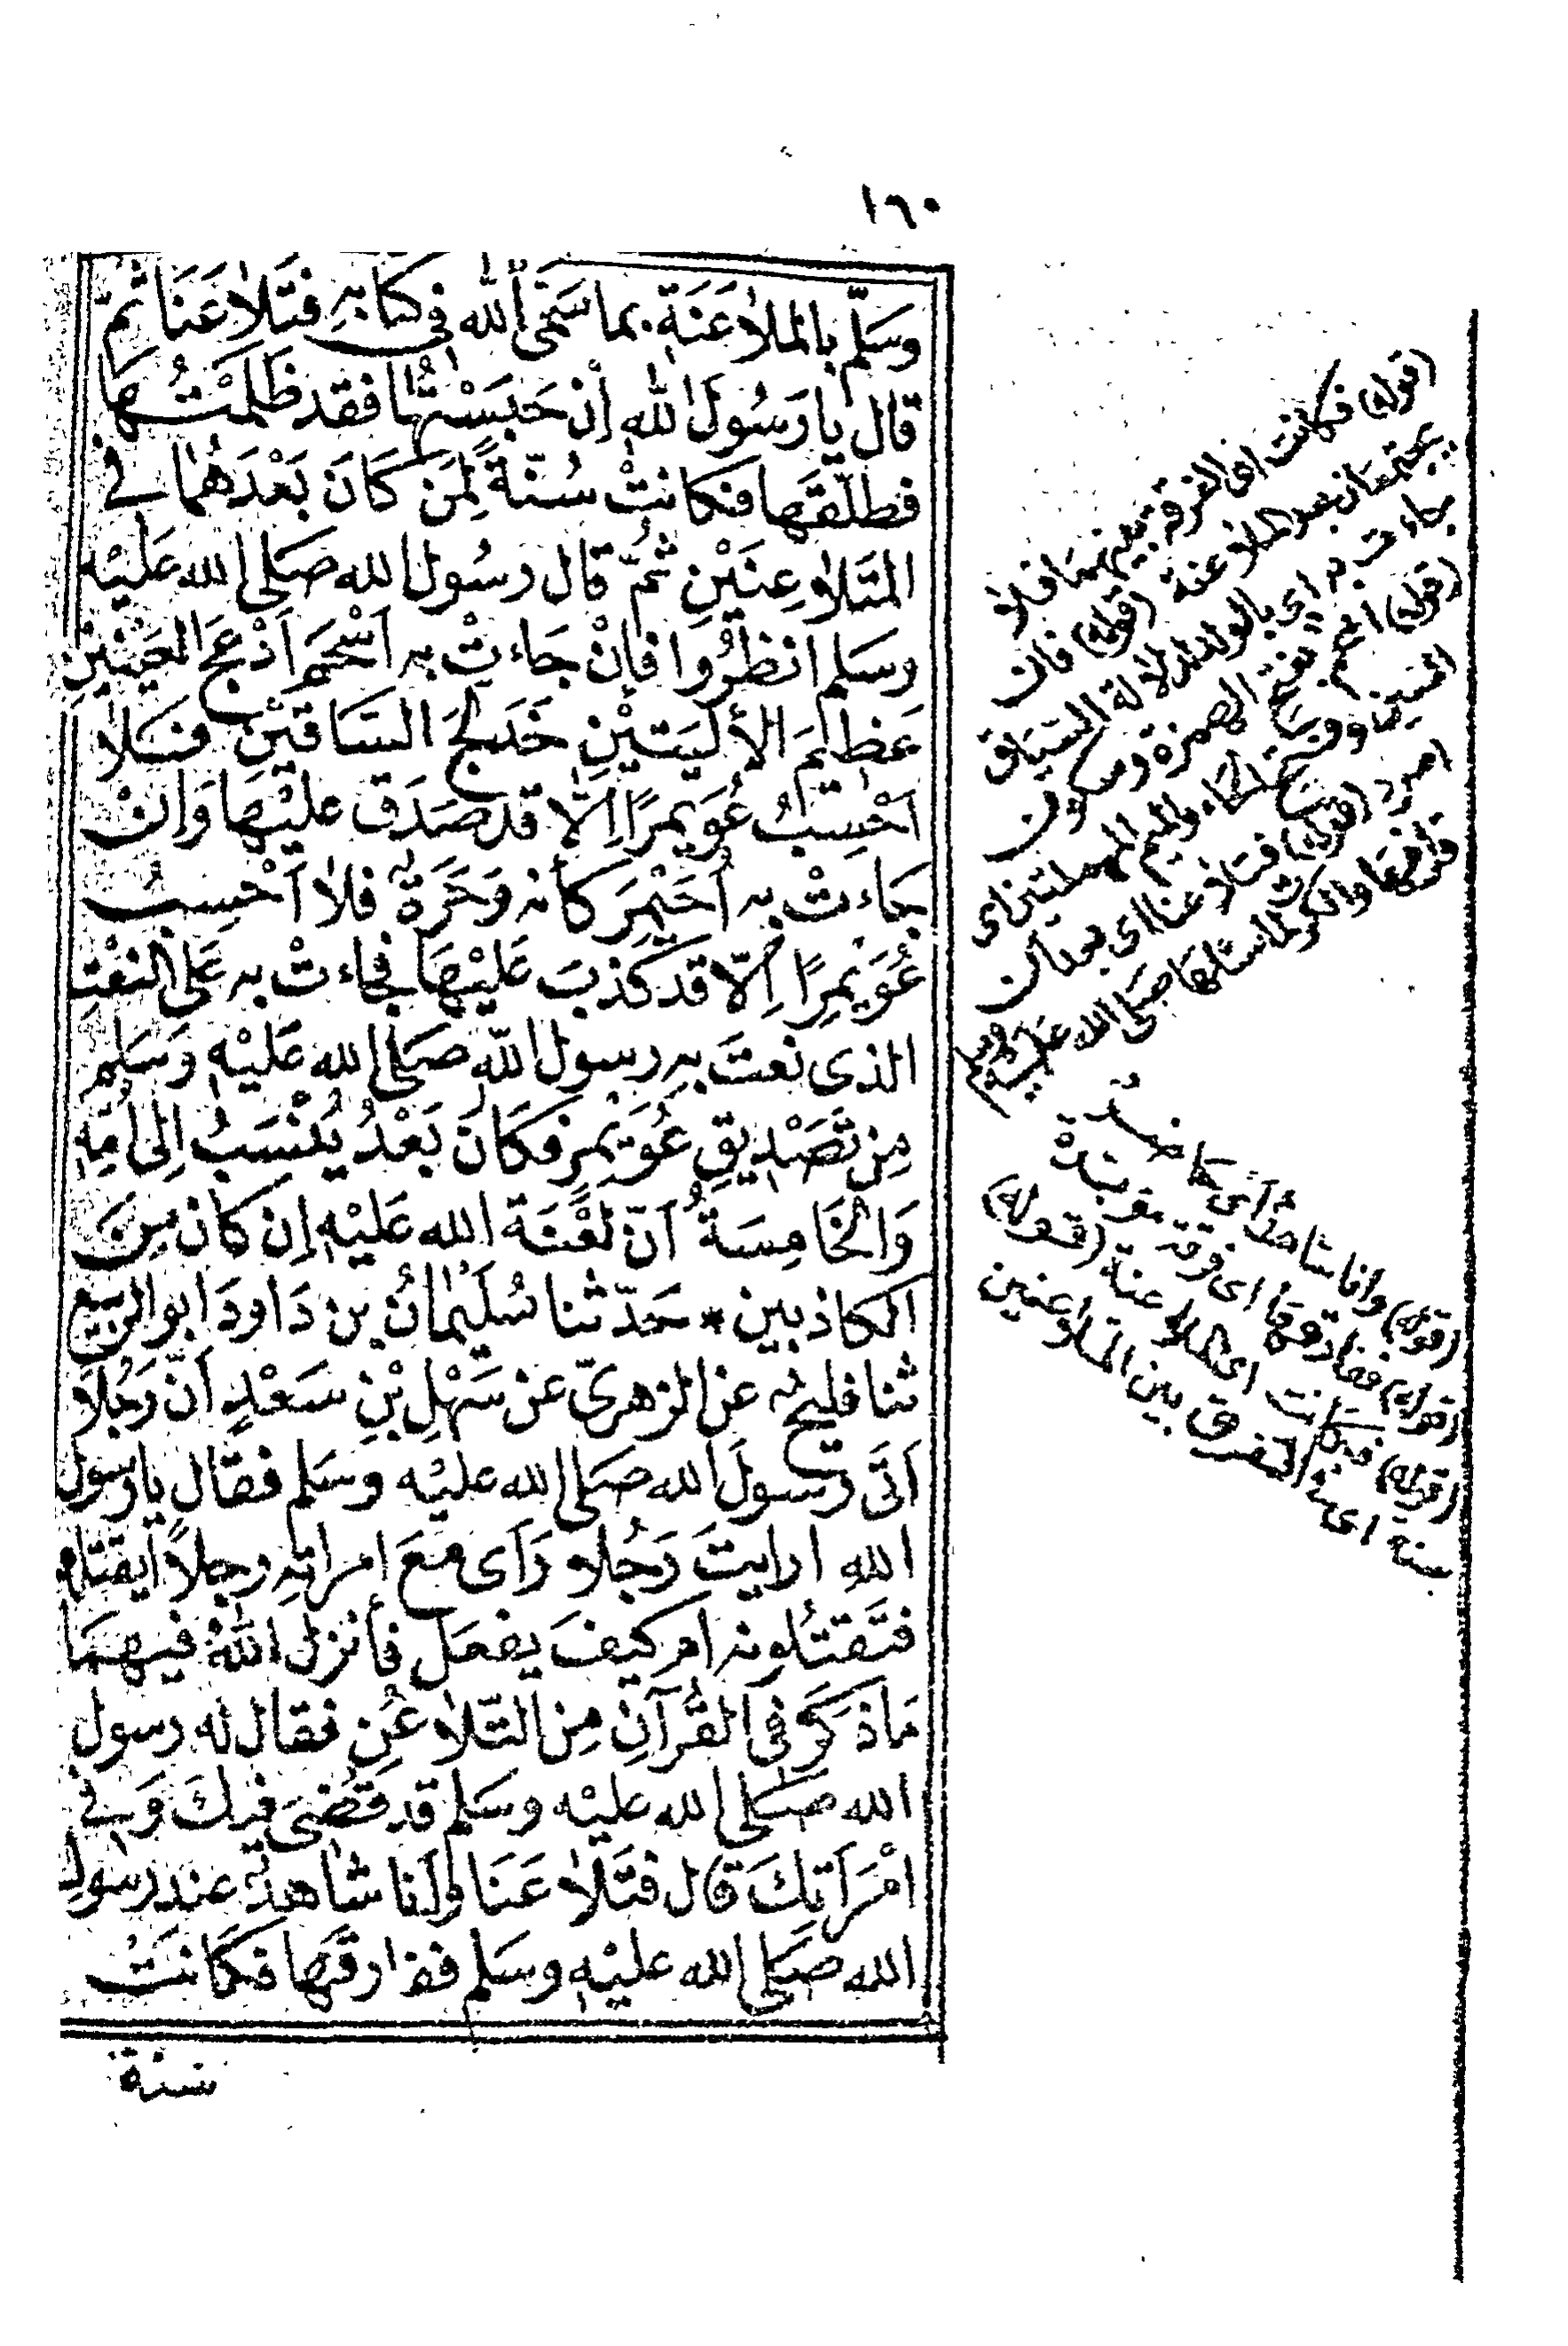 ١٦٠
وَسَلّم بالملاَعَنَةِ بما سَمّى الله فى كتابِهِ فتَلاَعَنَا ثمّ
قال يا رَسُولَ الله اِنْ حَبَسْتُهَا فقد ظَلَمْتُهَا
فطلّقَهَا فكانتْ سُنّةً لِمَن كَانَ بَعْدَهُمَا فى
المتَلاَعِنَيْنِ ثُمّ قال رسُول الله صَلى الله عَليْه
وسَلم انظُرُوا فاِنْ جَاءتْ به اَسْحَمَ اَدْعَجَ العَيْنَيْنِ
عَظِيمَ الألْيَتَيْنِ خَدَلَّجَ السّاقَيْنِ فلاَ
اَحْسِبُ عُوَيمرًا اِلّا قد صَدَق عليْهَا وَاِنْ
جَاءتْ به اُحَيْمِرَ كأنه وَحَرَةٌ فلاَ اَحْسِبُ
عُوَيْمِرًا اِلّا قد كذبَ عَليْهَا فجاءتْ به عَلى النعْتِ
الذى نعتَ بهِ رسول الله صَلى الله عَليْهِ وَسَلم
مِن تَصْدِيقِ عُوَيْمرٍ فكَانَ بَعْدُ يُنْسَبُ اِلى اُمّهِ
وَالخَامِسَةُ اَنّ لَعْنَةَ الله عَليْهِ اِن كانَ مِنَ
الكاذبين * حَدّثنا سُلَيْمَانُ بن دَاودَ ابو الرّبيع
ثنا فليحٌ عن الزهرىّ عن سَهْلِ بْنِ سَعْدٍ اَنّ رَجُلاً
اَتَى رسولَ الله صَلى الله عليْه وسَلم فقال يا رسول
الله ارايتَ رَجُلا رَاَى مَعَ امراتهِ رجلاً ايقتله
فتَقتُلونه ام كيفَ يفعَل فأنزل اللهُ فيهمَا
مَا ذكَرَ فى القُرآنِ مِن التّلاَعُنِ فقال له رسول
الله صَلى الله عليْه وسَلم قد قُضىَ فيكَ وَفى
امْرَاَتِكَ قال فتَلاَعَنَا وَاَنا شاهدٌ عند رسول
الله صَلى الله عليْهِ وسَلم ففارقَهَا فكَانَتْ
سنة
(قوله) فكانت اى الفرقة بينهما فلا
يجتمعان بعد الملاعنة (قوله) فان
جاءت به اى بالولد لدلالة السياق
(قوله) اسحم بفتح الهمزة وسكون
السين وفتح الحاء والميم المهملتين اى
اسود (قوله) فتلاعنا اى بعد ان
قذفها وانكرت لما سألها صَلى الله عَليه وسلم
(قوله) وانا شاهد اى حاضر
(قوله) ففارقها اى فرقة مؤبدة
(قوله) فكانت اى الملاعنة (قوله)
سنة اى التفريق بين المتلاعنين